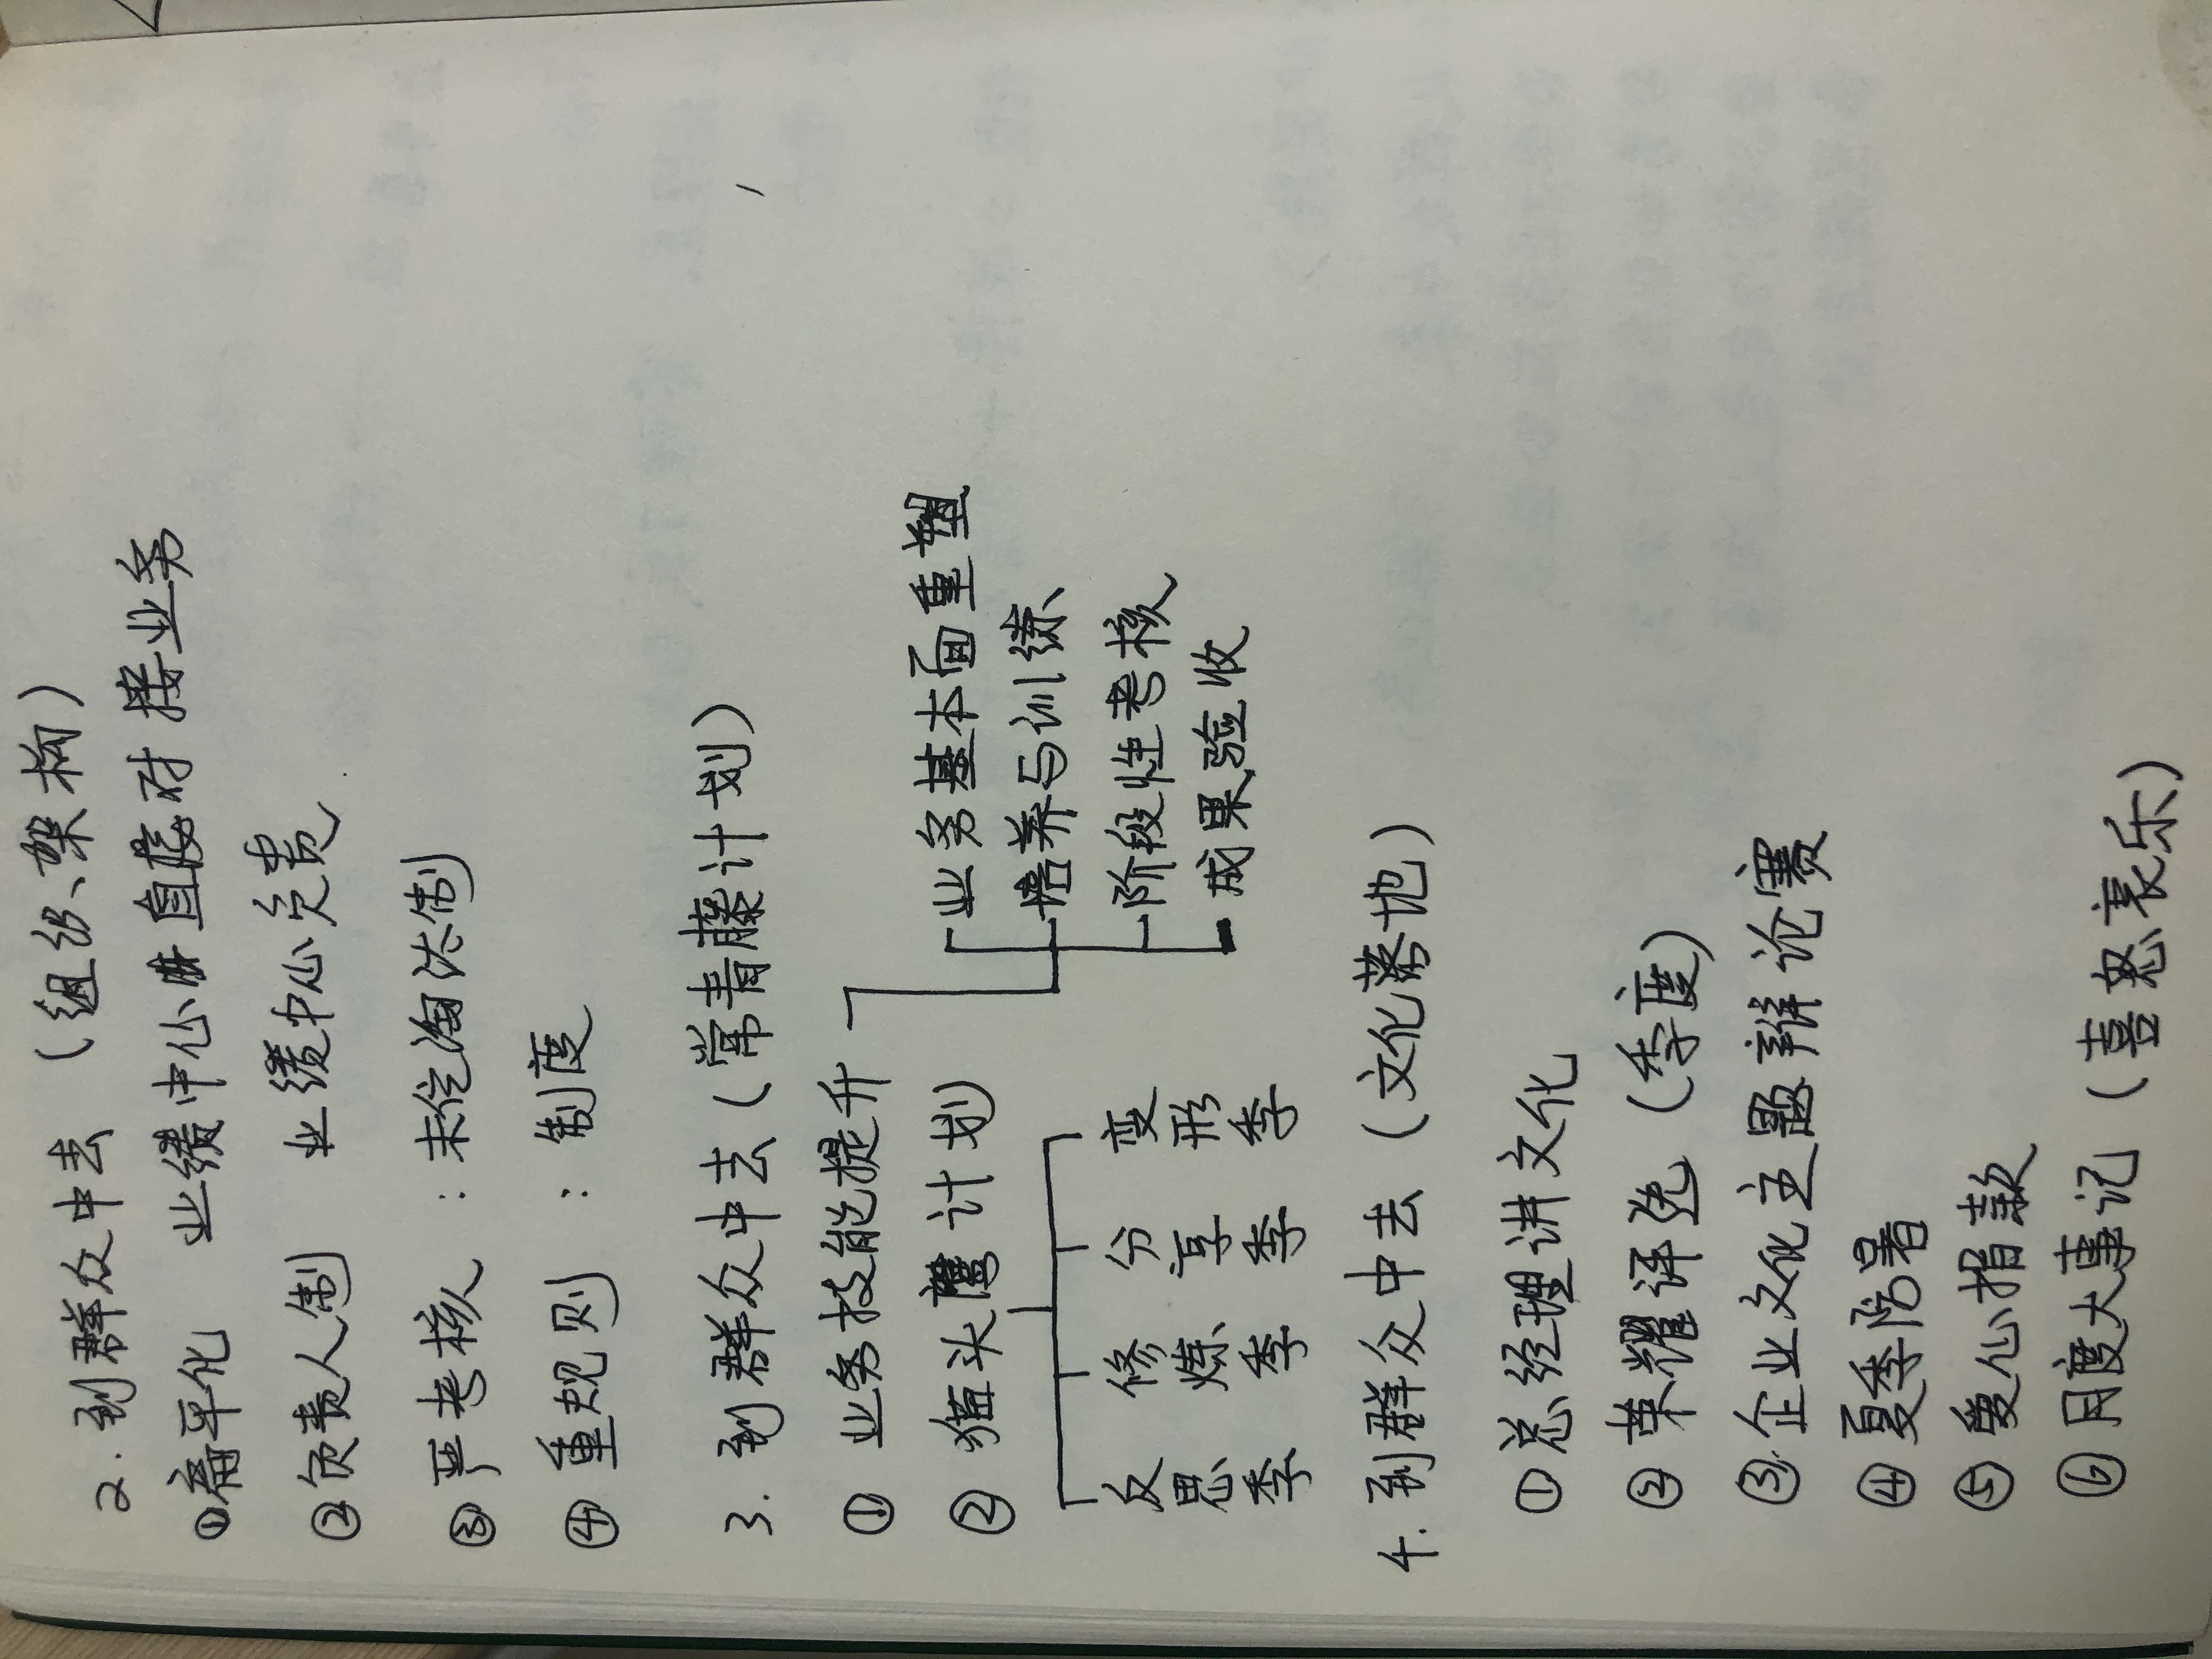 2. 到群众中去 (组织、架构)
①扁平化 业绩中心 直接对接业务
②负责人制 业绩中心负责
③严考核 : 末位淘汰制
④重规则 : 制度
3. 到群众中去 (常青藤计划)
① 业务技能提升
业务基本面重塑
培养与训练
阶段性考核
成果验收
② 猫头鹰计划
反思季 修炼季 分享季 变形季
4. 到群众中去 (文化落地)
①总经理讲文化
②荣耀评选 (季度)
③企业文化主题辩论赛
④夏季防暑
⑤爱心捐款
⑥月度大事记 (喜怒哀乐)